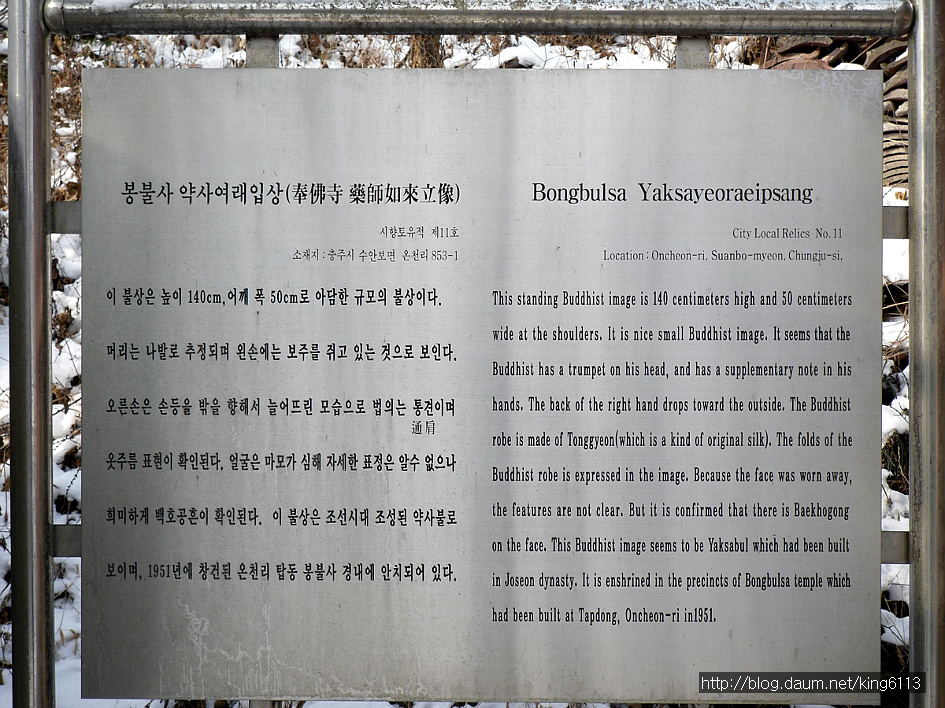 봉불사 약사여래입상(奉佛寺 藥師如來立像)
시향토유적 제11호
소재지 : 충주시 수안보면 온천리 853-1
이 불상은 높이 140cm, 어깨 폭 50cm로 아담한 규모의 불상이다.
머리는 나발로 추정되며 왼손에는 보주를 쥐고 있는 것으로 보인다.
오른손은 손등을 밖을 향해서 늘어뜨린 모습으로 법의는 통견이며
通肩
옷주름 표현이 확인된다. 얼굴은 마모가 심해 자세한 표정은 알수 없으나
희미하게 백호공흔이 확인된다. 이 불상은 조선시대 조성된 약사불로
보이며, 1951년에 창건된 온천리 탑동 봉불사 경내에 안치되어 있다.
Bongbulsa Yaksayeoraeipsang
City Local Relics No. 11
Location : Oncheon-ri, Suanbo-myeon, Chungju-si,
This standing Buddhist image is 140 centimeters high and 50 centimeters
wide at the shoulders. It is nice small Buddhist image. It seems that the
Buddhist has a trumpet on his head, and has a supplementary note in his
hands. The back of the right hand drops toward the outside. The Buddhist
robe is made of Tonggyeon(which is a kind of original silk). The folds of the
Buddhist robe is expressed in the image. Because the face was worn away,
the features are not clear. But it is confirmed that there is Baekhogong
on the face. This Buddhist image seems to be Yaksabul which had been built
in Joseon dynasty. It is enshrined in the precincts of Bongbulsa temple which
had been built at Tapdong, Oncheon-ri in1951.
http://blog.daum.net/king6113